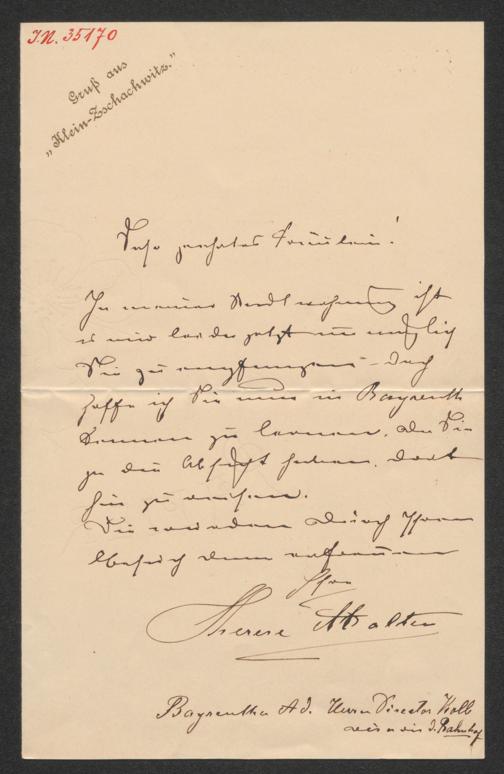 I.N. 35170
Gruß aus
„Klein-Zschachwitz."
Sehr geehrtes Fräulein!
In meiner Stadtwohnung ist
es mir leider jetzt unmöglich
Sie zu empfangen – doch
hoffe ich Sie nun in Bayreuth
kennen zu lernen, da Sie
ja die Absicht haben, dort
hin zu reisen.
Sie würden durch Ihren
Besuch dann erfreuen
Ihre
Therese Malten
Bayreuther Ad. Herrn Director Kolb
vis a vis d. Bahnhof